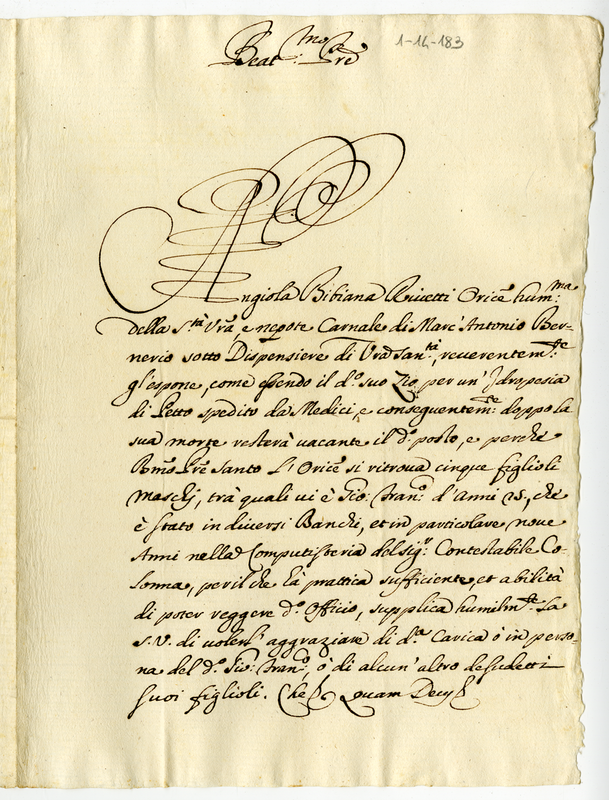 Beat.mo Pre
1-14-183
Angiola Bibiana Rivetti Orice hum:ma
della S.tà Vra, e nepote Carnale di Marc' Antonio Ber-
nerio sotto Dispensiere di Vra San.tà, reverentem.te
gl'espone, come essendo il d.o suo Zio per un' Idropesia
di Petto spedito da Medici, e conseguentem.te doppo la
sua morte resterà vacante il d.o posto, e perche
Bmo Pre Santo l'Orice si ritrova cinque figlioli
Maschj, trà quali vi è Gio: Fran.o d'Anni 25, che
è stato in diversi Banchi, et in particolare nove
Anni nella Computisteria del sig.r Contestabile Co-
lonna, per il che hà prattica sufficiente, et abilità
di poter reggere d.o Officio, supplica humilm.te La
S.V. di volerl' aggraziare di d.ta Carica ò in perso-
na del d.o Gio: Fran.o, ò di alcun' altro de sudetti
suoi figlioli. Che Quam Deus